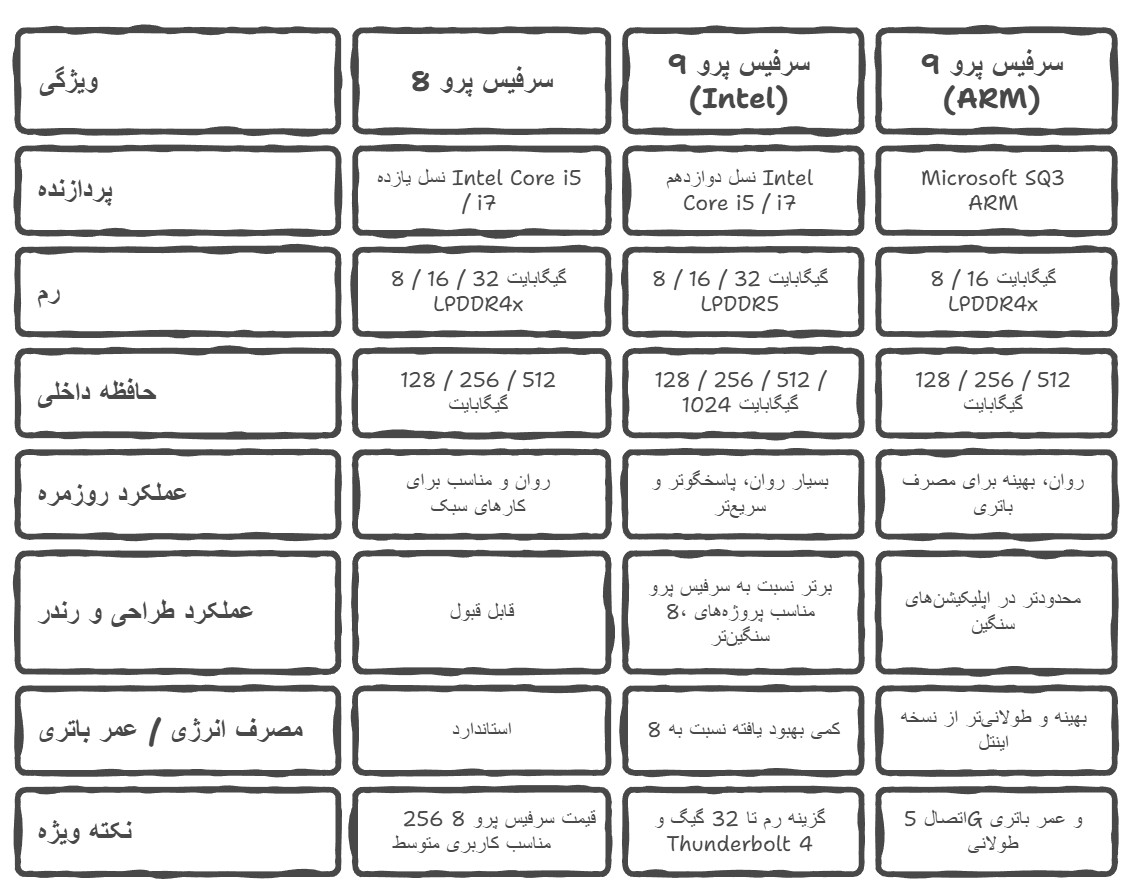 ویژگی
سرفیس پرو 8
سرفیس پرو 9
(Intel)
سرفیس پرو 9
(ARM)
پردازنده
Intel Core i5 نسل یازده
/ i7
Intel نسل دوازدهم
Core i5 / i7
Microsoft SQ3
ARM
رم
8 / 16 / 32 گیگابایت
LPDDR4x
8 / 16 / 32 گیگابایت
LPDDR5
8 / 16 گیگابایت
LPDDR4x
حافظه داخلی
128 / 256 / 512
گیگابایت
128 / 256 / 512 /
1024 گیگابایت
128 / 256 / 512
گیگابایت
عملکرد روزمره
روان و مناسب برای
کارهای سبک
بسیار روان، پاسخگوتر و
سریع‌تر
روان، بهینه برای مصرف
باتری
عملکرد طراحی و رندر
قابل قبول
برتر نسبت به سرفیس پرو
8، مناسب پروژه‌های
سنگین‌تر
محدودتر در اپلیکیشن‌های
سنگین
مصرف انرژی / عمر باتری
استاندارد
کمی بهبود یافته نسبت به 8
بهینه و طولانی‌تر از نسخه
اینتل
نکته ویژه
قیمت سرفیس پرو 8 256
مناسب کاربری متوسط
گزینه رم تا 32 گیگ و
Thunderbolt 4
اتصال 5G و عمر باتری
طولانی